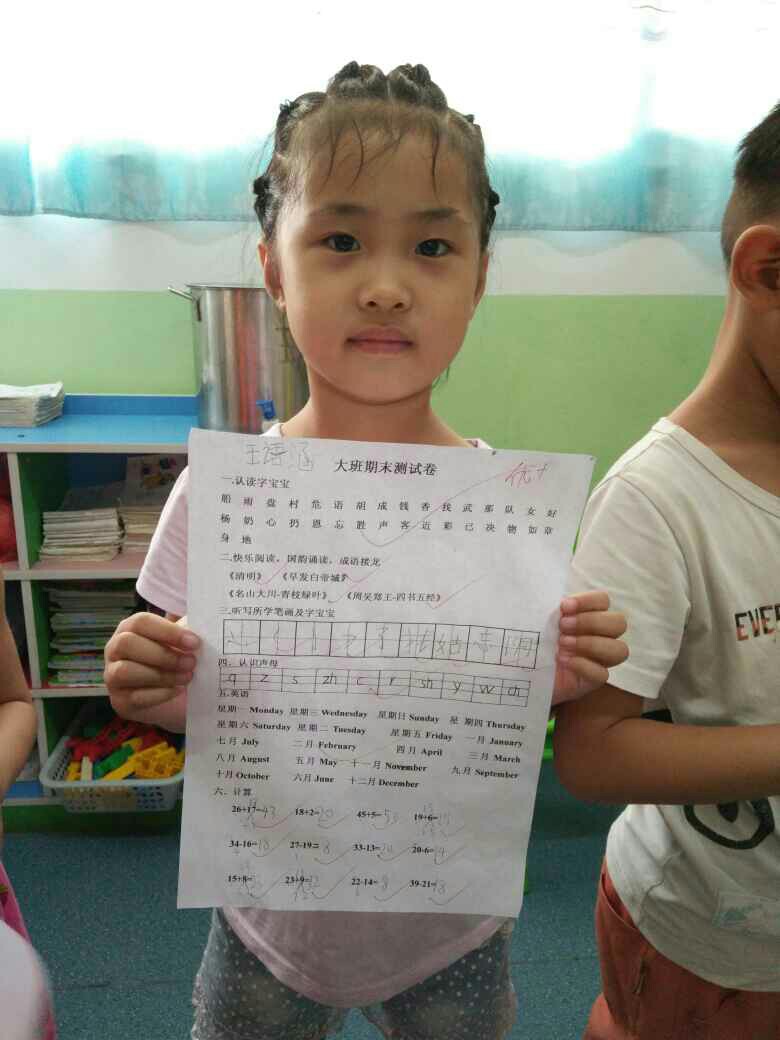 王语涵 大班期末测试卷 优+
一.认读字宝宝
船 雨 盘 村 危 语 胡 成 钱 香 我 武 那 队 女 好
杨 奶 心 扔 恩 忘 胜 声 客 近 彩 己 决 物 如 章
身 地
二.快乐阅读、国韵诵读、成语接龙
《清明》 《早发白帝城》
《名山大川-青枝绿叶》 《周吴郑王-四书五经》
三.听写所学笔画及字宝宝
四、认识声母
q z s zh c r sh y w ch
五.英语
星期一 Monday 星期三 Wednesday 星期日 Sunday 星 期四 Thursday
星期六 Saturday 星期二 Tuesday 星期五 Friday 一月 January
七月 July 二月 February 四月 April 三月 March
八月 August 五月 May 十一月 November 九月 September
十月 October 六月 June 十二月 December
六、计算
26+17=43 18+2=20 45+5=50 19+6=
34-16=18 27-19=8 33-13=20 20-6=14
15+8= 23+9=32 22-14=8 39-21=18
PERFEC
EVERY